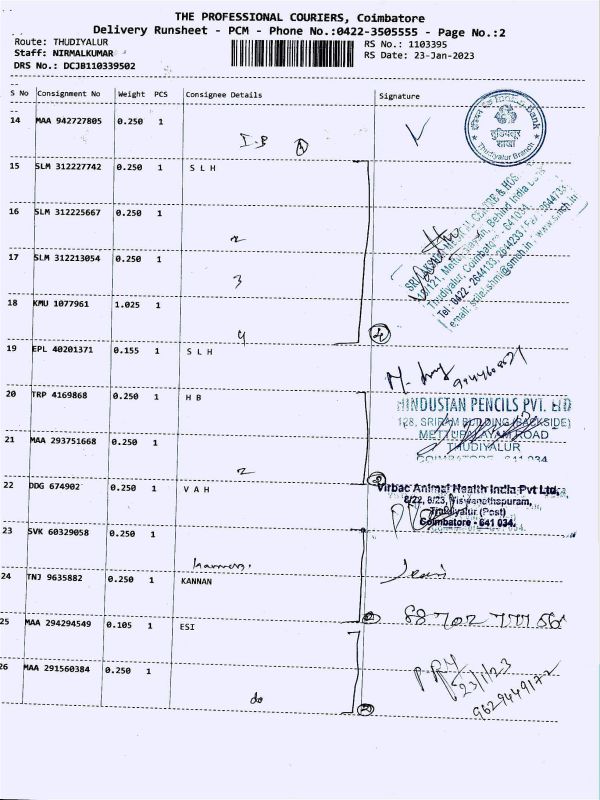 THE PROFESSIONAL COURIERS, Coimbatore
Delivery Runsheet - PCM - Phone No.:0422-3505555 - Page No.:2
Route: THUDIYALUR
RS No.: 1103395
Staff: NIRMALKUMAR
RS Date: 23-Jan-2023
DRS No.: DCJB110339502
S No Consignment No Weight PCS Consignee Details Signature
14 MAA 942727805 0.250 1
I.B
Indian Bank
इंडियन बैंक
तुडियलूर
शाखा
Thudiyalur Branch
15 SLM 312227742 0.250 1 S L H
16 SLM 312225667 0.250 1
2
17 SLM 312213054 0.250 1
3
18 KMU 1077961 1.025 1
4
Thudiyalur, Coimbatore - 641034.
Tel : 0422 - 2644133, 2644233
19 EPL 40201371 0.155 1 S L H
20 TRP 4169868 0.250 1 H B
HINDUSTAN PENCILS PVT. LTD
128, SRIRAM BUILDING (BACKSIDE)
METTUPALAYAM ROAD
THUDIYALUR
COIMBATORE - 641 034
21 MAA 293751668 0.250 1
2
22 DDG 674902 0.250 1 V A H
Virbac Animal Health India Pvt Ltd,
6/22, 6/23, Viswanathapuram,
Thudiyalur (Post)
Coimbatore - 641 034.
23 SVK 60329058 0.250 1
24 TNJ 9635882 0.250 1 KANNAN
25 MAA 294294549 0.105 1 ESI
26 MAA 291560384 0.250 1
do
23/1/23
9629449172